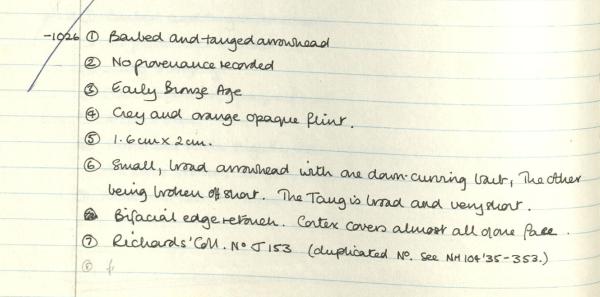 -1026 ① Barbed and-tanged arrowhead
② No provenance recorded
③ Early Bronze Age
④ Grey and orange opaque flint.
⑤ 1.6cm x 2cm.
⑥ Small, broad arrowhead with one down-curving barb, The other
being broken off short. The Tang is broad and very short.
Bifacial edge retouch. Cortex covers almost all of one face.
⑦ Richards' Coll. No J 153 (duplicated No. See NH104'35-353.)
⑧